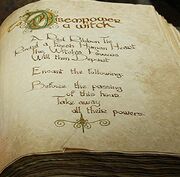 Disempower
a witch
A Red Ribbon Tie
Round a Fresh Human Heart
The Witch's Powers
Will then Depart
Enchant the following:
Before the passing
of this hour
Take away
all their powers.